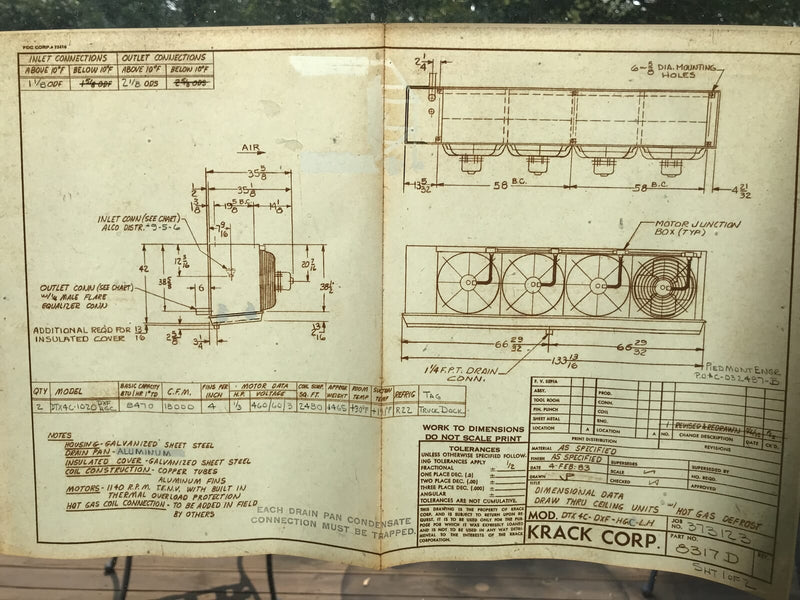 FDC CORP. # 73416
INLET CONNECTIONS OUTLET CONNECTIONS
ABOVE 10°F BELOW 10°F ABOVE 10°F BELOW 10°F
1 1/8 ODF 1 5/8 ODF 2 1/8 ODS 2 5/8 ODS
2 1/4
6 - 5/8 DIA. MOUNTING
HOLES
AIR
35 5/8
35 1/8
1/2
19 5/8 B.C.
14 1/8
13 5/32
58 B.C.
58 B.C.
4 21/32
INLET CONN (SEE CHART)
ALCO DISTR. #9-5-6
9/16
12 3/16
42
38 5/8
6
38 1/2
OUTLET CONN (SEE CHART)
W/ 1/4 MALE FLARE
EQUALIZER CONN
ADDITIONAL REQD FOR
INSULATED COVER
13/16
2 5/8
3 1/4
MOTOR JUNCTION
BOX (TYP)
66 29/32
66 29/32
133 13/16
1 1/4 F.P.T. DRAIN
CONN.
PIEDMONT ENGR
P.O.#C-032487-B
QTY MODEL BASIC CAPACITY BTU/HR 1°TD C.F.M. FINS PER INCH MOTOR DATA H.P. VOLTAGE COIL SURF. SQ. FT. APPROX WEIGHT ROOM TEMP SUCTION TEMP REFRIG TAG
2 DTX4C-1020 DXF HGC 8470 18000 4 1/3 460/60/3 2480 1465 +30°F +19°F R22 TRUCK DOCK
NOTES
HOUSING - GALVANIZED SHEET STEEL
DRAIN PAN - ALUMINUM
INSULATED COVER - GALVANIZED SHEET STEEL
COIL CONSTRUCTION - COPPER TUBES
ALUMINUM FINS
MOTORS - 1140 R.P.M. T.E.N.V. WITH BUILT IN
THERMAL OVERLOAD PROTECTION
HOT GAS COIL CONNECTION - TO BE ADDED IN FIELD
BY OTHERS
EACH DRAIN PAN CONDENSATE
CONNECTION MUST BE TRAPPED.
WORK TO DIMENSIONS
DO NOT SCALE PRINT
TOLERANCES
UNLESS OTHERWISE SPECIFIED FOLLOW-
ING TOLERANCES APPLY
FRACTIONAL ± 1/2
ONE PLACE DEC. (.0) ±
TWO PLACE DEC. (.00) ±
THREE PLACE DEC. (.000) ±
ANGULAR ±
TOLERANCES ARE NOT CUMULATIVE.
THIS DRAWING IS THE PROPERTY OF KRACK
CORP. AND IS SUBJECT TO RETURN UPON RE-
QUEST. IT IS TO BE USED ONLY FOR THE PUR-
POSE FOR WHICH IT WAS EXPRESSLY LOANED
AND IS NOT TO BE USED IN ANY WAY DETRI-
MENTAL TO THE INTERESTS OF THE KRACK
CORPORATION.
ASSY. PROD.
TOOL ROOM COM.
PIN. PUNCH COIL
SHEET METAL ENG. 1 REVISED & REDRAWN
LOCATION A LOCATION A NO. CHANGE DESCRIPTION DATE CK'D.
PRINT DISTRIBUTION REVISIONS
MATERIAL AS SPECIFIED
FINISH AS SPECIFIED
DATE 4-FEB-83 SUPERSEDES SUPERSEDED BY
DRAWN SCALE NO. REQD.
TITLE CHECKED APPROVED
DIMENSIONAL DATA
DRAW THRU CEILING UNITS W/ HOT GAS DEFROST
MOD. DTX4C-DXF-HGC-LH
KRACK CORP.
JOB NO. 373123
PART NO. 8317 D REV.
SHT 1 OF 2